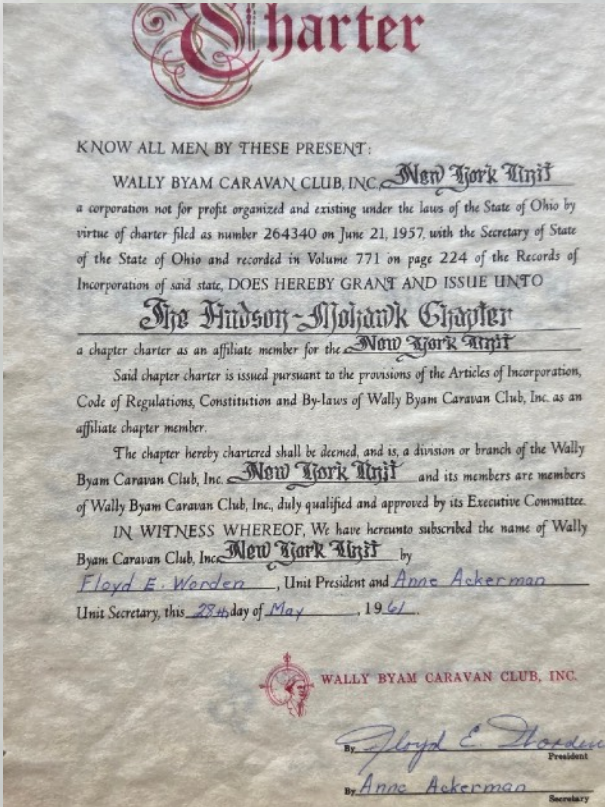 Charter
KNOW ALL MEN BY THESE PRESENT:
WALLY BYAM CARAVAN CLUB, INC. New York Unit
a corporation not for profit organized and existing under the laws of the State of Ohio by
virtue of charter filed as number 264340 on June 21, 1957, with the Secretary of State
of the State of Ohio and recorded in Volume 771 on page 224 of the Records of
Incorporation of said state, DOES HEREBY GRANT AND ISSUE UNTO
The Hudson-Mohawk Chapter
a chapter charter as an affiliate member for the New York Unit
Said chapter charter is issued pursuant to the provisions of the Articles of Incorporation,
Code of Regulations, Constitution and By-laws of Wally Byam Caravan Club, Inc. as an
affiliate chapter member.
The chapter hereby chartered shall be deemed, and is, a division or branch of the Wally
Byam Caravan Club, Inc. New York Unit and its members are members
of Wally Byam Caravan Club, Inc., duly qualified and approved by its Executive Committee.
IN WITNESS WHEREOF, We have hereunto subscribed the name of Wally
Byam Caravan Club, Inc. New York Unit by
Floyd E. Worden, Unit President and Anne Ackerman
Unit Secretary, this 28th day of May, 1961.
WALLY BYAM CARAVAN CLUB, INC.
By Floyd E Worden
President
By Anne Ackerman
Secretary